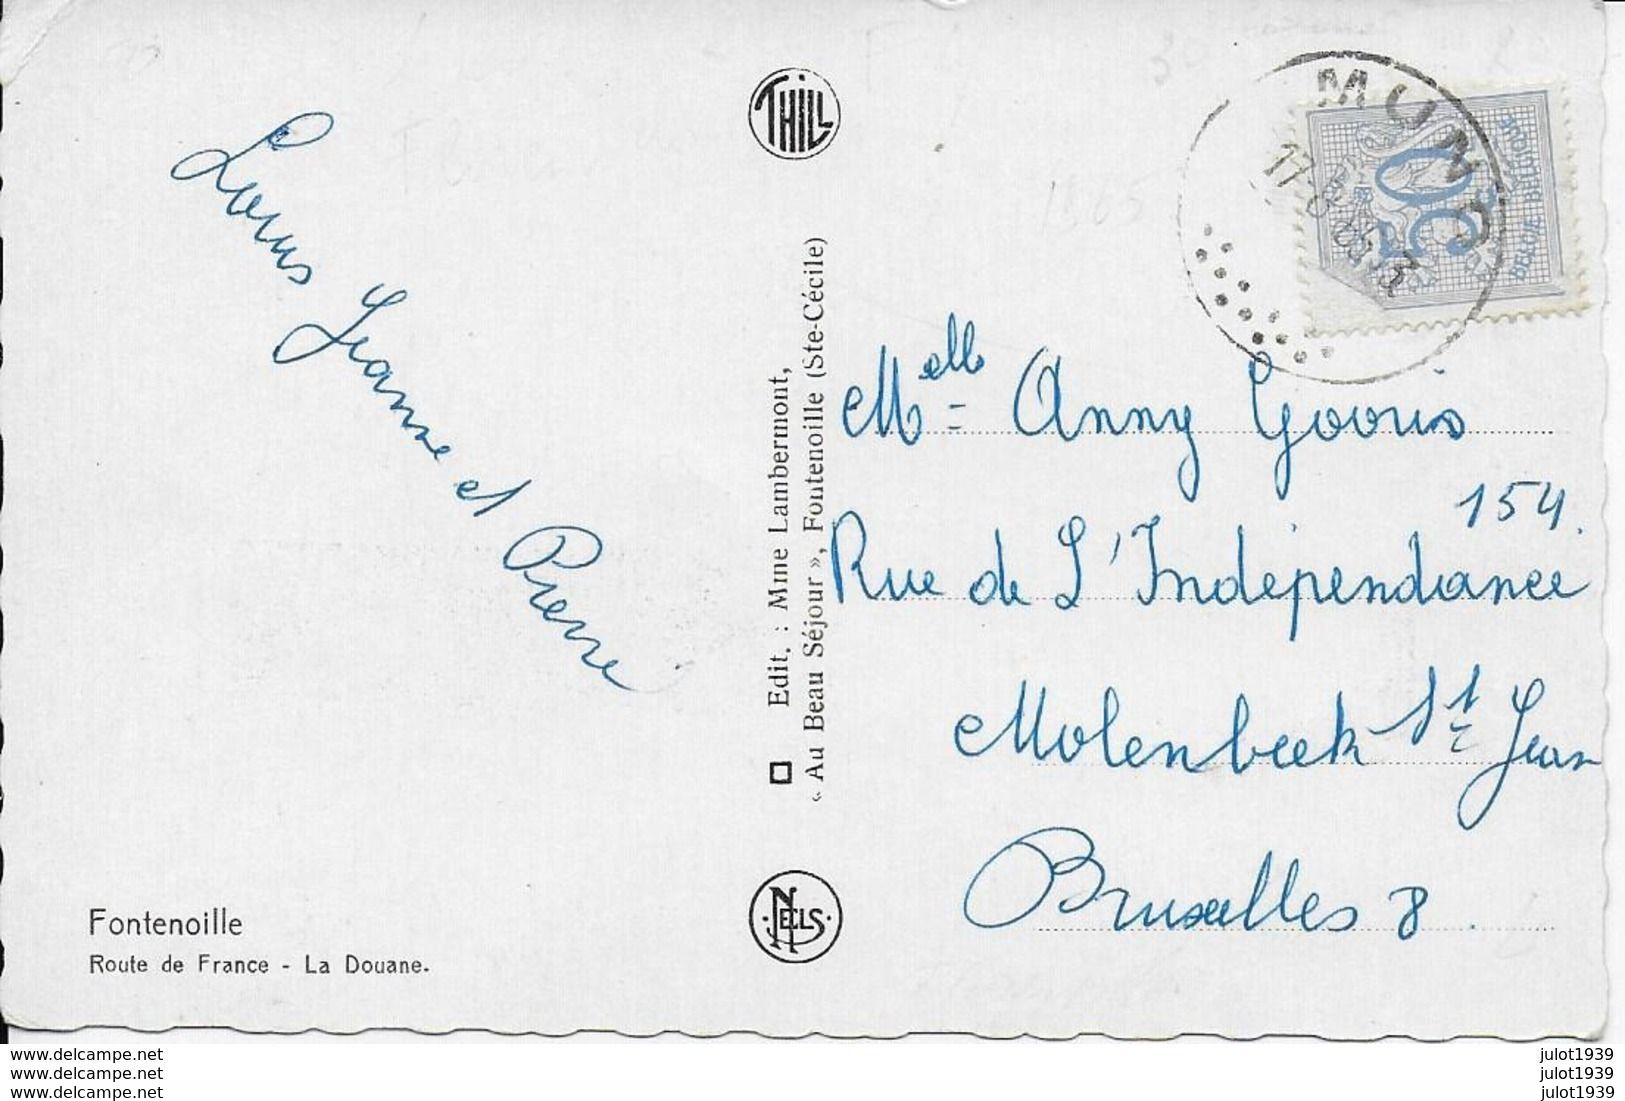 THILL
Louis Jeanne et Pierre
Edit. : Mme Lambermont,
« Au Beau Séjour », Fontenoille (Ste-Cécile)
NELS
Fontenoille
Route de France - La Douane.
MUNO
17
50
BELGIE BELGIQUE
Melle Anny Govris
154.
Rue de L'Indépendance
Molenbeek St Jean
Bruxelles 8.
www.delcampe.net
www.delcampe.net
www.delcampe.net
julot1939
julot1939
julot1939